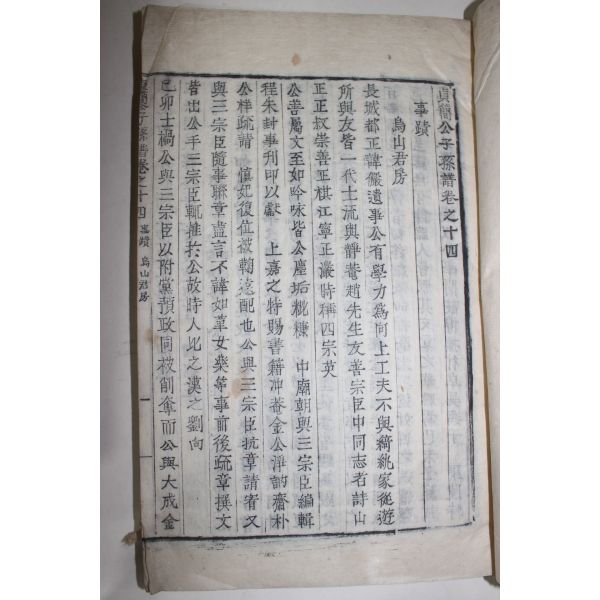 貞簡公子孫譜卷之十四
事蹟
烏山君房
長城都正諱儼遺事公有學力爲向上工夫不與綺紈家從遊
所與友皆一代士流與靜菴趙先生友善宗臣中同志者詩山
正正叔崇善正棋江寧正濈時稱四宗英
公善屬文至如吟咏皆公塵垢粃糠 中廟朝與三宗臣編輯
程朱封事刊印以獻 上嘉之特賜書籍冲菴金公淨訥齋朴
公祥疏請 愼妃復位被輈遠配也公與三宗臣抗章請宥又
與三宗臣隨事聯章盡言不諱如革女樂等事前後疏章撰文
皆出公手三宗臣輒推於公故時人比之漢之劉向
己卯士禍公與三宗臣以附黨預政同被削奪而公與大成金
子孫譜卷之十四 事蹟 烏山君房 一